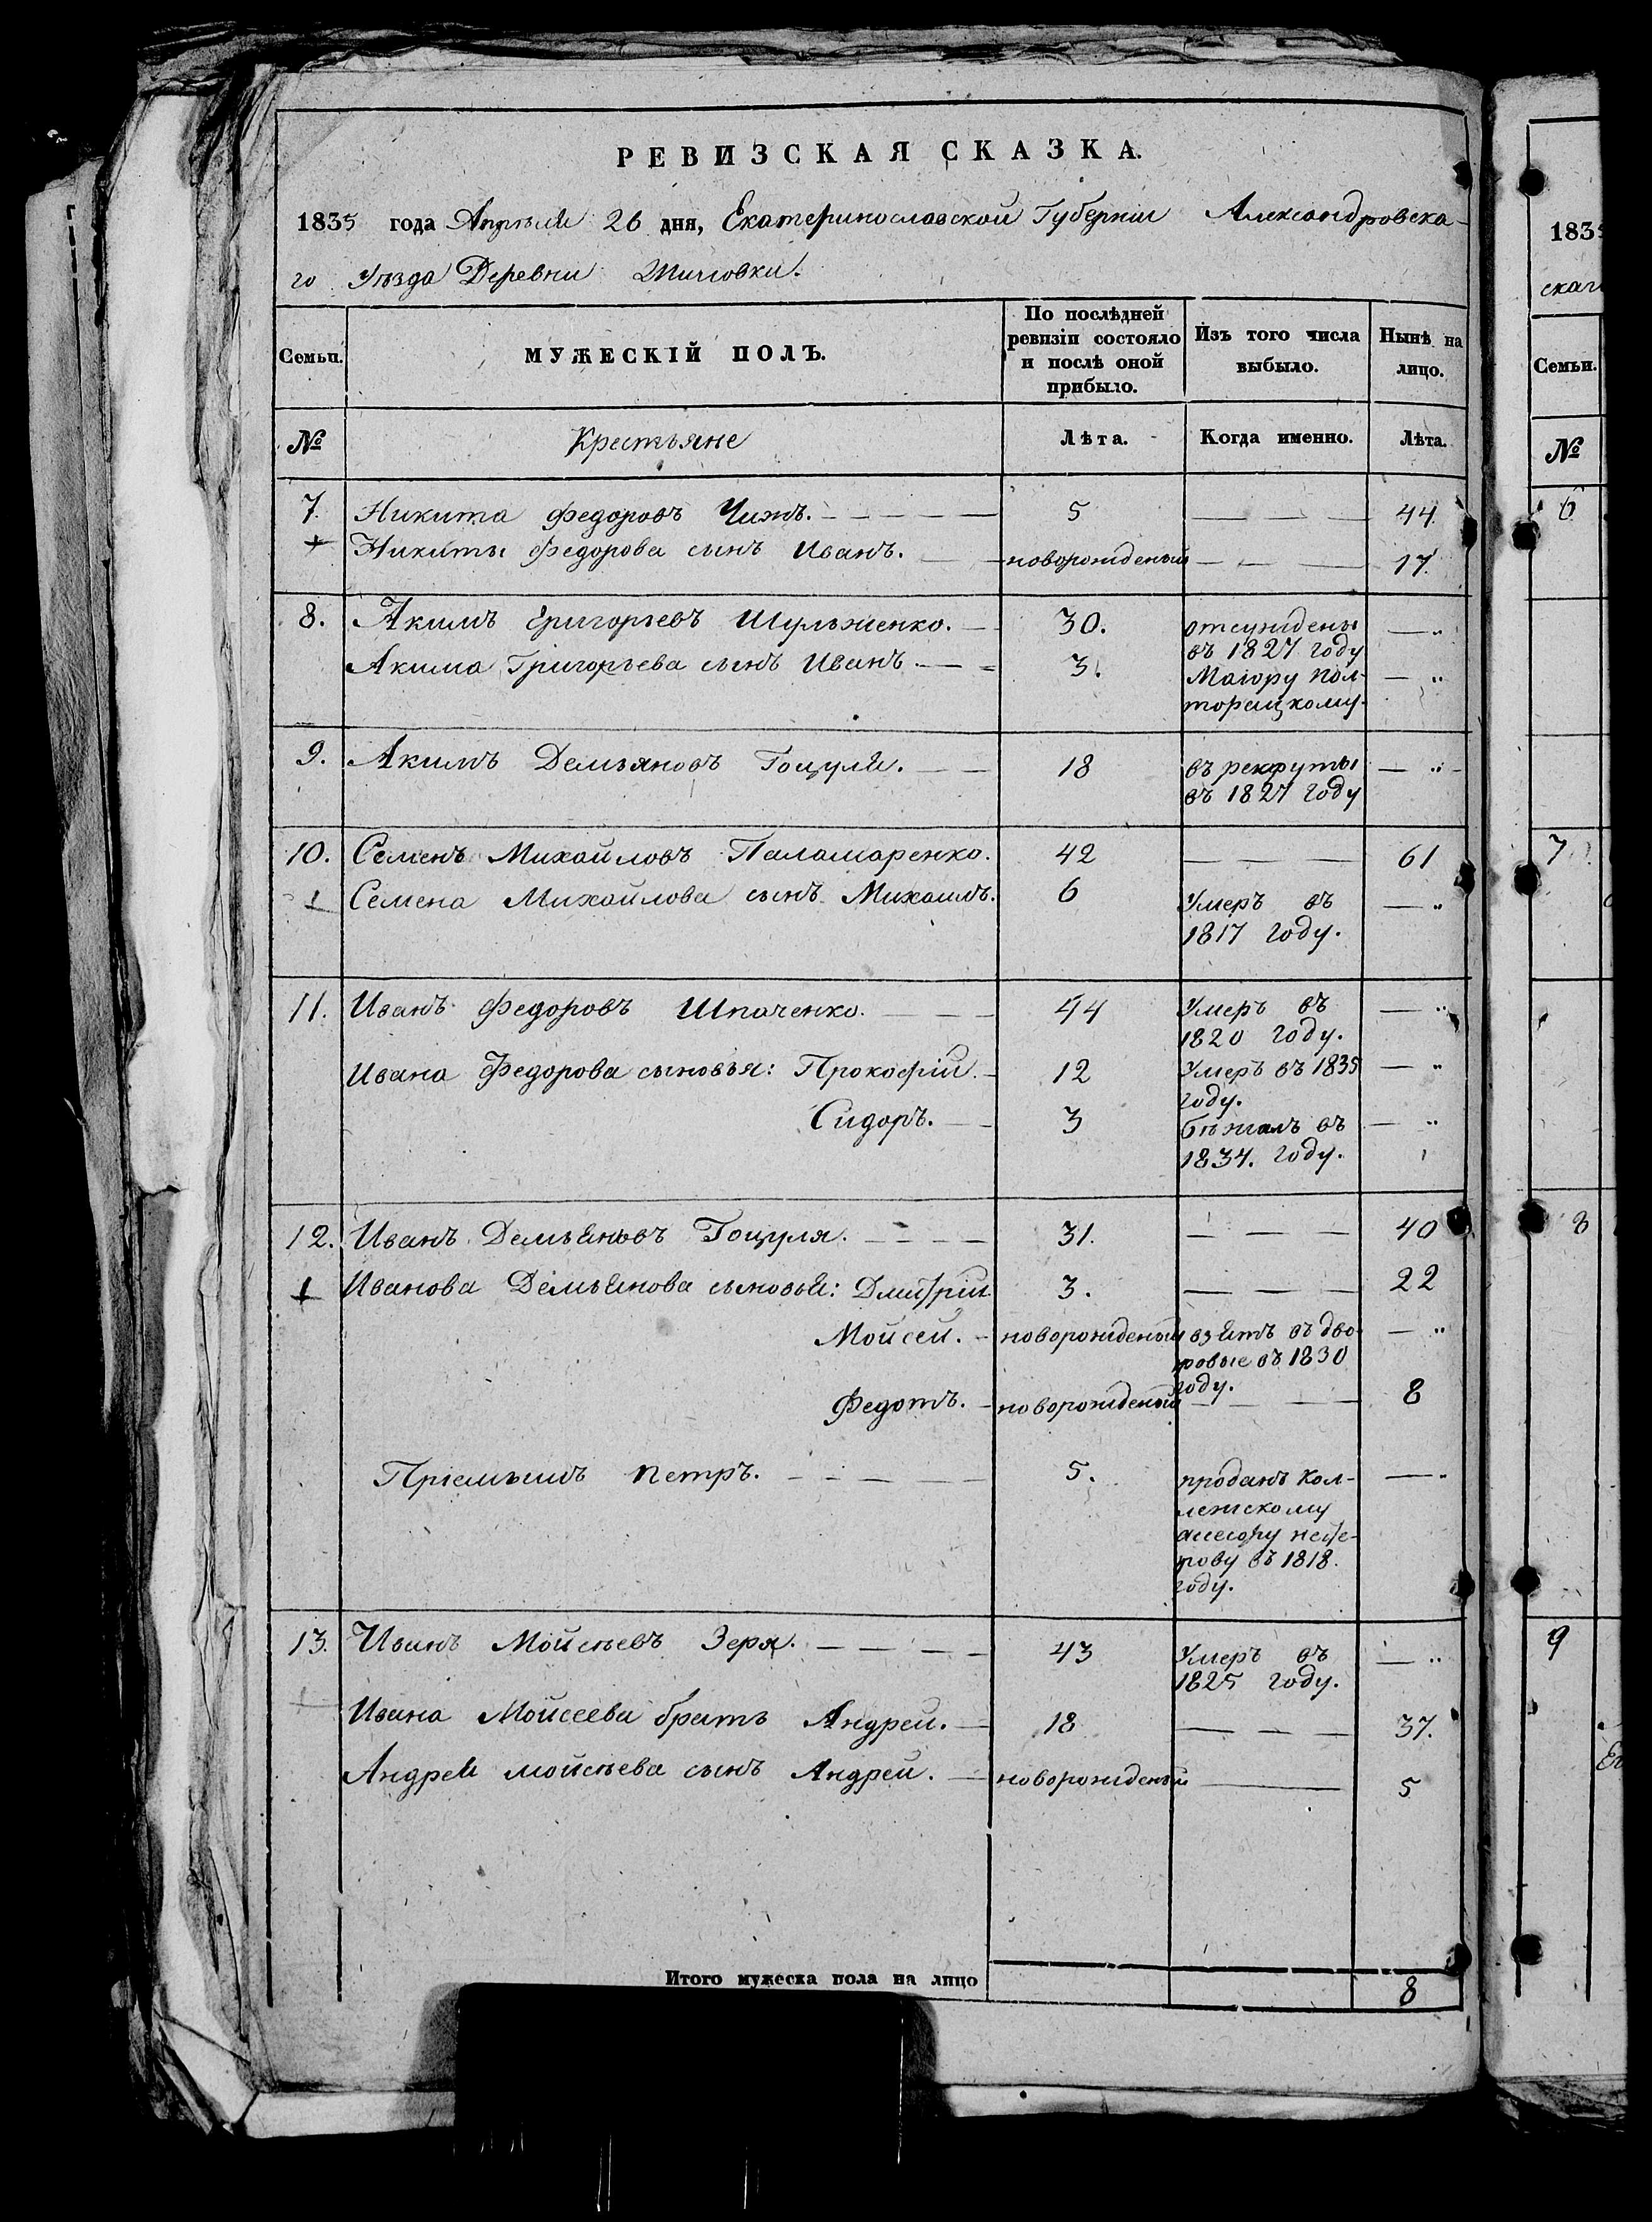 РЕВИЗСКАЯ СКАЗКА.
1835 года Апрѣля 26 дня, Екатеринославской Губерніи Александровска-
го Уѣзда Деревни
Семьи. МУЖЕСКІЙ ПОЛЪ. По послѣдней ревизіи состояло и послѣ оной прибыло. Изъ того числа выбыло. Нынѣ на лицо.
№ Крестьяне Лѣта. Когда именно. Лѣта.
7. Никита Федоровъ Чижъ. 5 — — — 44.
+ Никиты Федорова сынъ Иванъ. новорожденый — — — 17.
8. Акимъ Григорьевъ Шульженко. 30. отсуждены — "
въ 1827 году
Акима Григорьева сынъ Иванъ. 3. Маіору Пол- — "
торацкому.
9. Акимъ Демьяновъ Гоцуля. 18 въ рекруты — "
въ 1827 году
10. Семенъ Михайловъ Паламаренко. 42 — — — 61
+ Семена Михайлова сынъ Михаилъ. 6 Умеръ въ — "
1817 году.
11. Иванъ Федоровъ Шпаченко. 44 Умеръ въ — "
1820 году.
Ивана Федорова сыновья: Прокофій. 12 Умеръ въ 1835 — "
году.
Сидоръ. 3 бѣжалъ въ — "
1834. году.
12. Иванъ Демьяновъ Гоцуля. 31. — — — 40
+ Иванова Демьянова сыновья: Дмитрій 3. — — — 22
Мойсей. новорожденый взятъ въ дво- — "
ровые въ 1830
году.
Федотъ. новорожденый — — — 8
Пріемышъ Петръ. 5. проданъ Кол- — "
лежскому
асесору
въ 1818.
году.
13. Иванъ Мойсѣевъ Зеря. 43 Умеръ въ — "
1825 году.
+ Ивана Мойсеева братъ Андрей. 18 — — — 37.
Андрея Мойсѣева сынъ Андрей. новорожденый — — 5
Итого мужеска пола на лицо 8
183
скаг
Семьи.
№
6
7
8
9